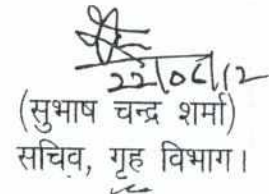 22/06/12
(सुभाष चन्द्र शर्मा)
सचिव, गृह विभाग।